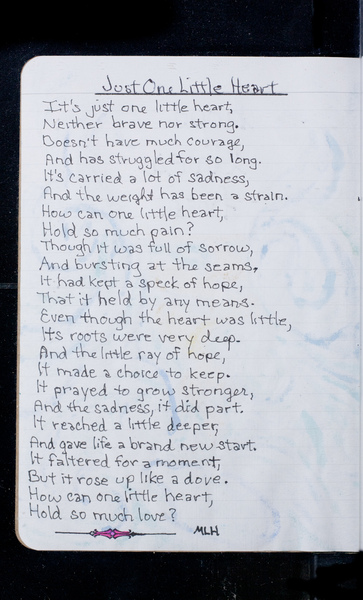 Just One Little Heart
It's just one little heart,
Neither brave nor strong.
Doesn't have much courage,
And has struggled for so long.
It's carried a lot of sadness,
And the weight has been a strain.
How can one little heart,
Hold so much pain?
Though it was full of sorrow,
And bursting at the seams,
It had kept a speck of hope,
That it held by any means.
Even though the heart was little,
Its roots were very deep.
And the little ray of hope,
It made a choice to keep.
It prayed to grow stronger,
And the sadness, it did part.
It reached a little deeper,
And gave life a brand new start.
It faltered for a moment,
But it rose up like a dove.
How can one little heart,
Hold so much love?
MLH